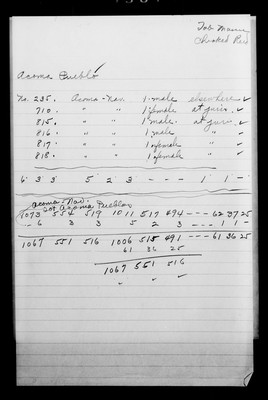 Acoma Pueblo ✓
No. 235. Acoma-Nav. 1 male elsewhere ✓
710. " " 1 female at juris. ✓
815. " " 1 male. at juris. ✓
816. " " 1 male ✓
817. " " 1 female ✓
818. " " 1 female ✓
6 3 3 5 2 3 - - - 1 1 -
Acoma-Nav.
Acoma Pueblos
1073 554 519 1011 517 494 - - - 62 37 25
- 6 3 3 5 2 3 - - - 1 1 -
1067 551 516 1006 515 491 - - - 61 36 25
61 36 25
1067 551 516